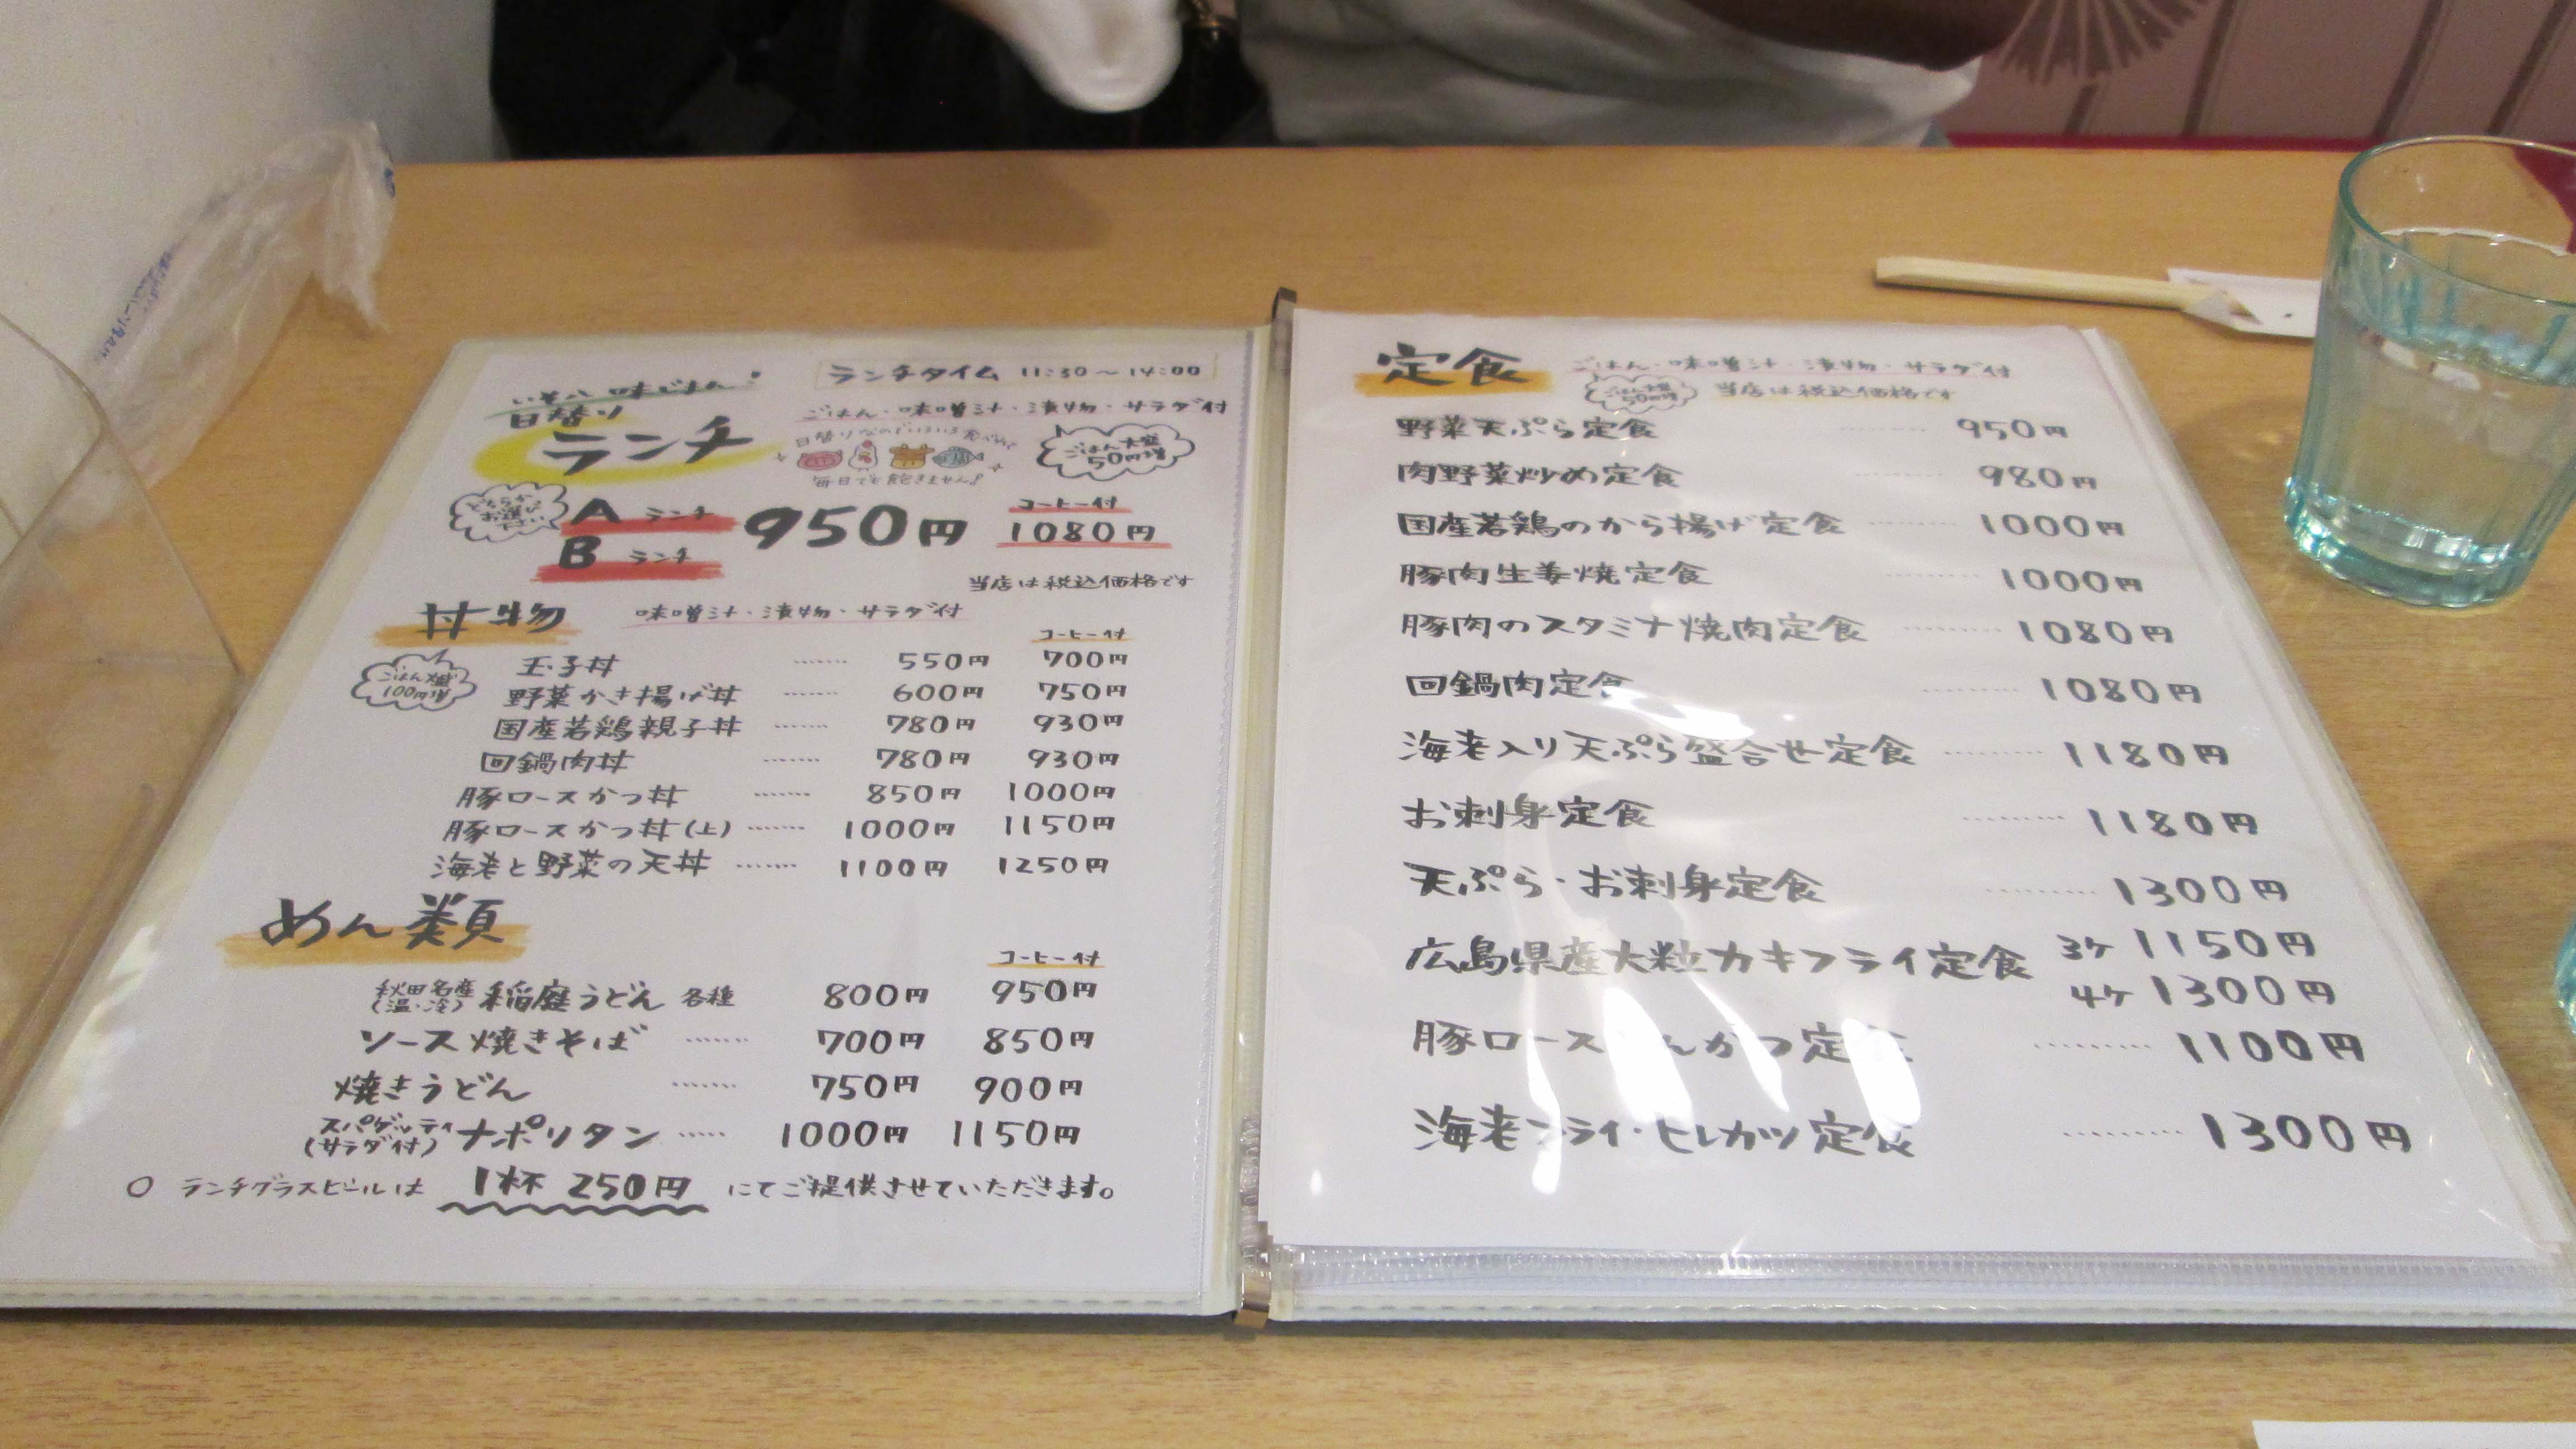 ランチタイム 11:30～14:00
日替り
ランチ
ごはん・味噌汁・漬物・サラダ付
日替りなのでいろいろ食べれて
毎日でも飽きません!
ごはん大盛
50円増
どちらか
お選び
下さい
A ランチ
B ランチ
950円
コーヒー付
1080円
当店は税込価格です
丼物 味噌汁・漬物・サラダ付
コーヒー付
ごはん大盛
100円増
玉子丼 …… 550円 700円
野菜かき揚げ丼 …… 600円 750円
国産若鶏親子丼 …… 780円 930円
回鍋肉丼 …… 780円 930円
豚ロースかつ丼 …… 850円 1000円
豚ロースかつ丼(上) …… 1000円 1150円
海老と野菜の天丼 …… 1100円 1250円
めん類
コーヒー付
秋田名産
(温・冷) 稲庭うどん 各種 800円 950円
ソース焼きそば …… 700円 850円
焼きうどん …… 750円 900円
スパゲッティ
(サラダ付) ナポリタン …… 1000円 1150円
○ ランチグラスビールは 1杯 250円 にてご提供させていただきます。
定食 ごはん・味噌汁・漬物・サラダ付
ごはん大盛
50円増
当店は税込価格です
野菜天ぷら定食 ……… 950円
肉野菜炒め定食 ……… 980円
国産若鶏のから揚げ定食 …… 1000円
豚肉生姜焼定食 ……… 1000円
豚肉のスタミナ焼肉定食 ……… 1080円
回鍋肉定食 ……… 1080円
海老入り天ぷら盛合せ定食 ……… 1180円
お刺身定食 ……… 1180円
天ぷら・お刺身定食 ……… 1300円
広島県産大粒カキフライ定食 3ケ 1150円
4ケ 1300円
豚ロースとんかつ定食 ……… 1100円
海老フライ・ヒレカツ定食 ……… 1300円